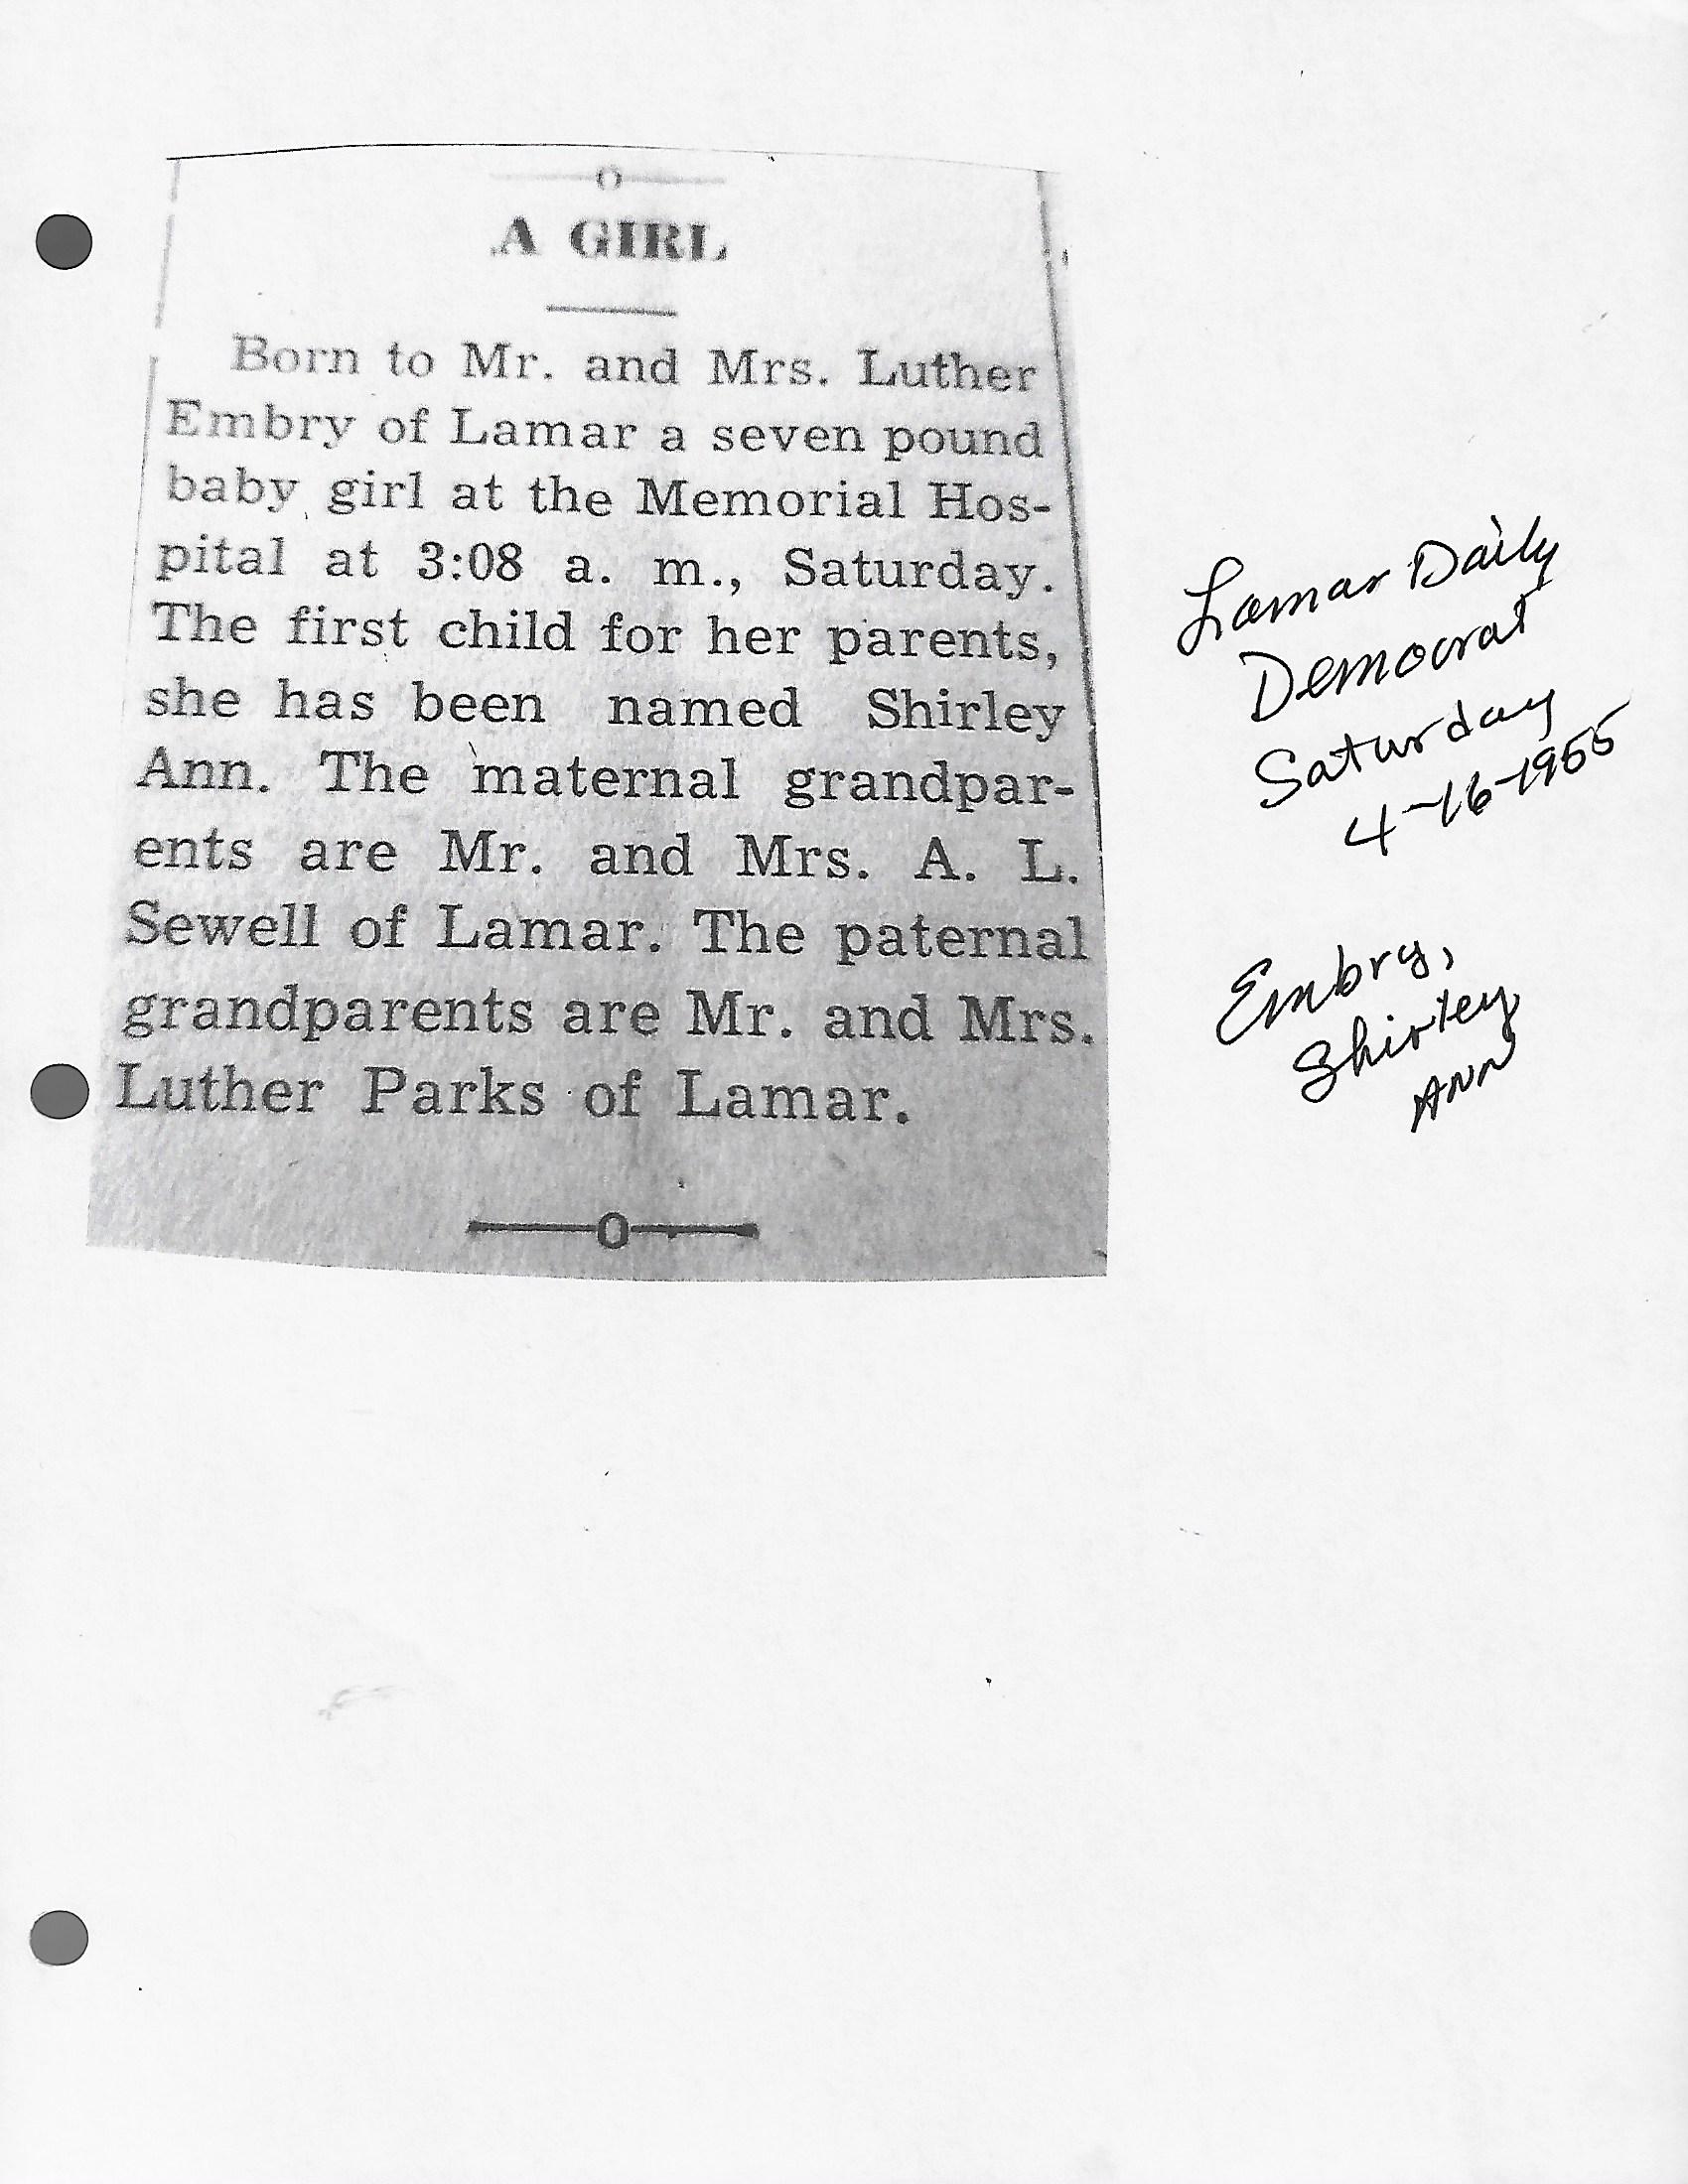 A GIRL
Born to Mr. and Mrs. Luther
Embry of Lamar a seven pound
baby girl at the Memorial Hos-
pital at 3:08 a. m., Saturday.
The first child for her parents,
she has been named Shirley
Ann. The maternal grandpar-
ents are Mr. and Mrs. A. L.
Sewell of Lamar. The paternal
grandparents are Mr. and Mrs.
Luther Parks of Lamar.
Lamar Daily
Democrat
Saturday
4-16-1955
Embry,
Shirley
ANN